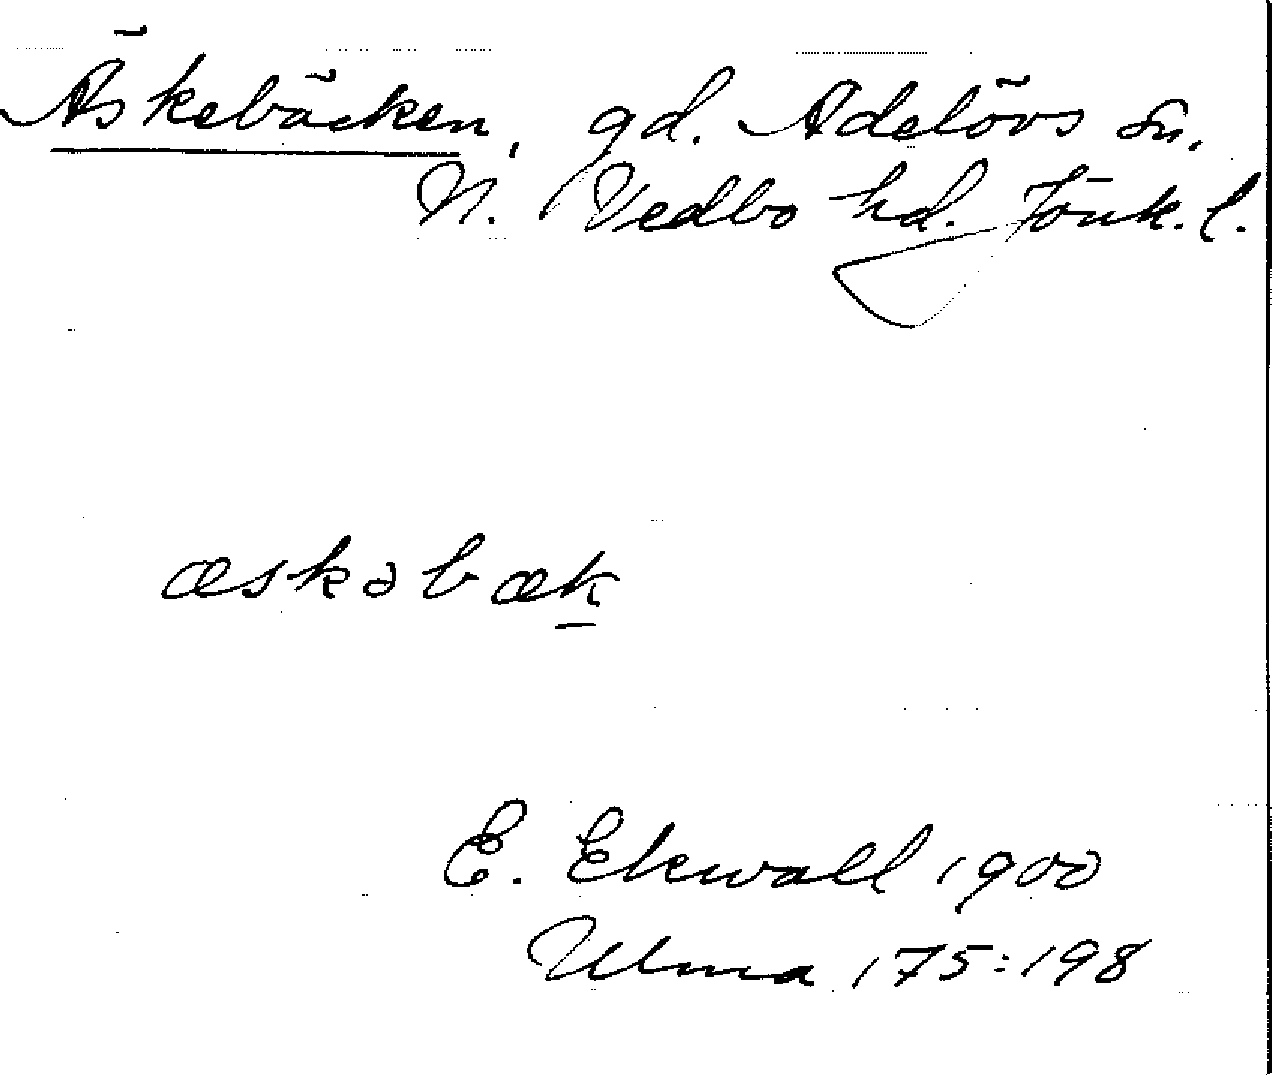 Äskebäcken, gd. Adelövs sn,
N. Vedbo hd. Jönk. l.
æskəbæk
E. Ekwall 1900
Ulma 175:198